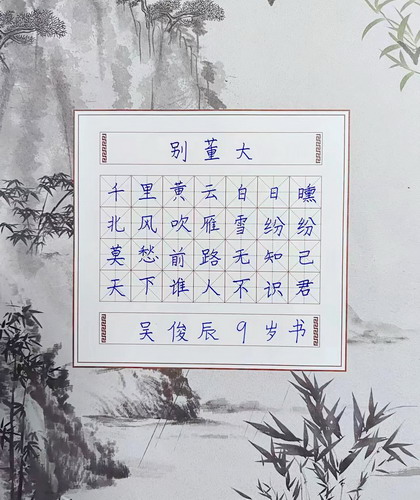 别董大
千里黄云白日曛
北风吹雁雪纷纷
莫愁前路无知己
天下谁人不识君
吴俊辰9岁书